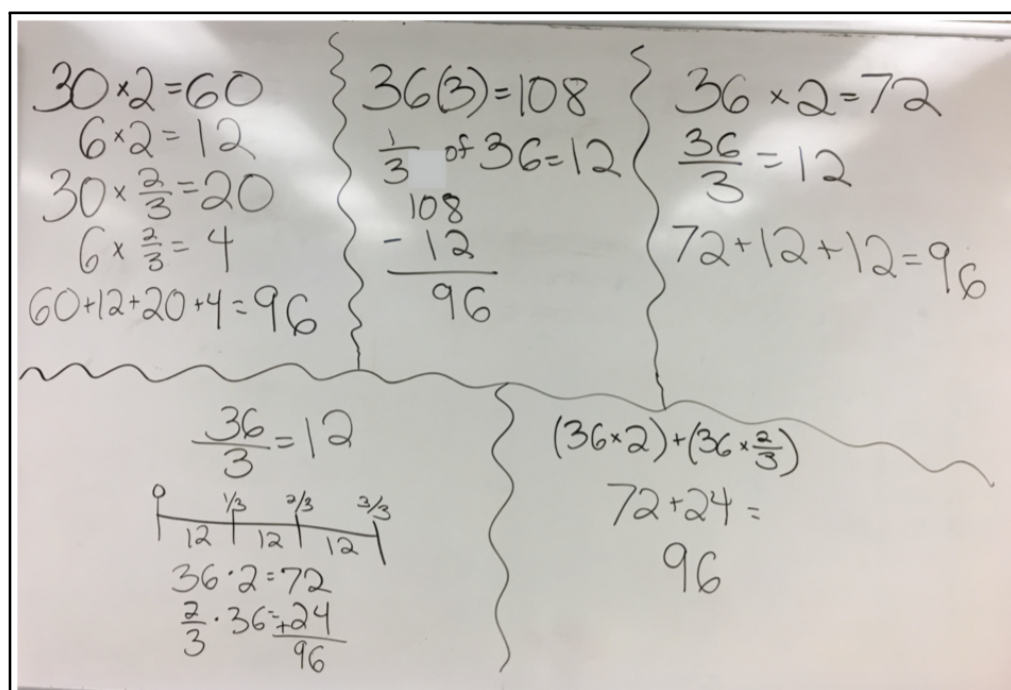 30 × 2 = 60
6 × 2 = 12
30 × 2/3 = 20
6 × 2/3 = 4
60+12+20+4=96
36(3)=108
1/3 of 36=12
108
- 12
96
36 × 2=72
36/3 = 12
72+12+12=96
36/3 = 12
0 1/3 2/3 3/3
12 12 12
36 · 2=72
2/3 · 36=+24
96
(36×2)+(36×2/3)
72+24=
96